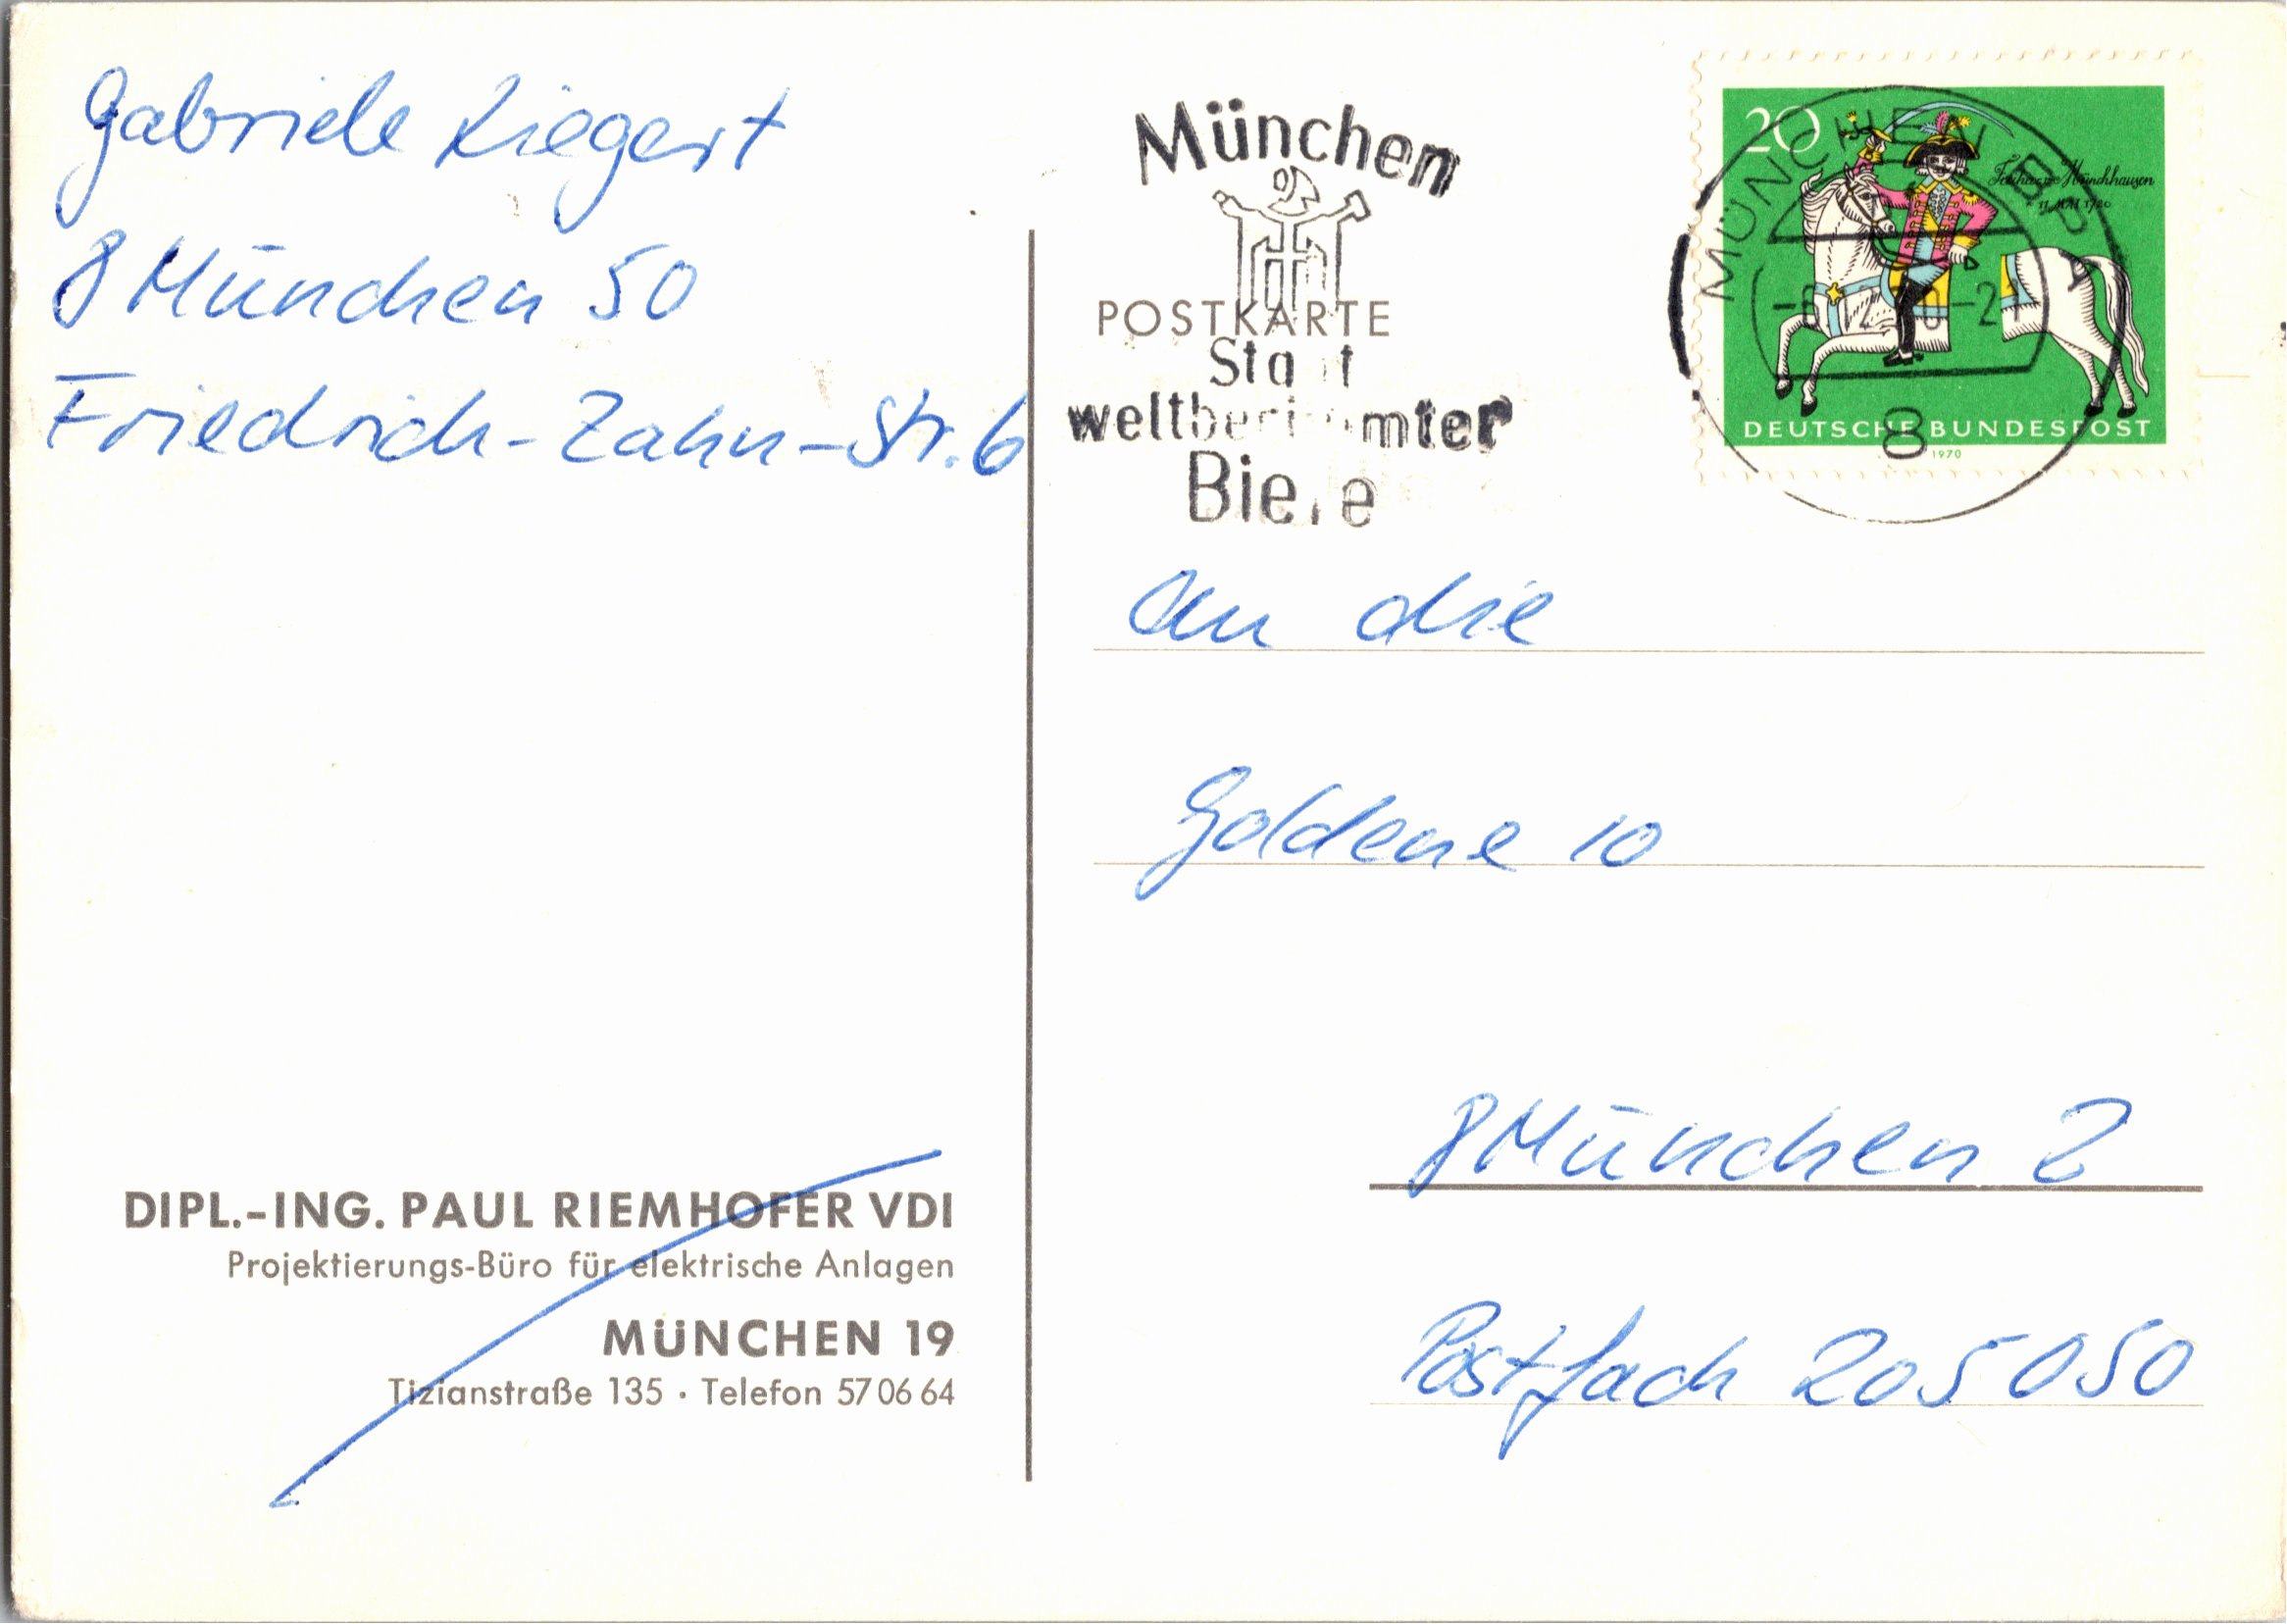 Gabriele Liegert
8 München 50
Friedrich-Zahn-Str. 6
München
POSTKARTE
Stadt
weltberühmter
Biere
20
MÜNCHEN BP
Freiherr v. Münchhausen
* 11. MAI 1720
8
DEUTSCHE BUNDESPOST
1970
An die
Goldene 10
8 München 2
Postfach 205050
DIPL.-ING. PAUL RIEMHOFER VDI
Projektierungs-Büro für elektrische Anlagen
MÜNCHEN 19
Tizianstraße 135 · Telefon 57 06 64